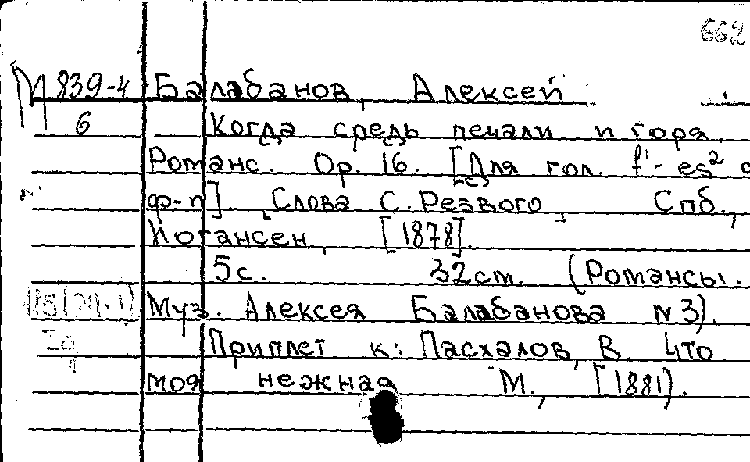 662
М 839-4 Балабанов, Алексей
6 Когда средь печали и горя.
Романс. Op. 16. [Для гол. f¹- es² с
ф-п]. Слова С. Резвого, Спб.,
Иогансен, [1878].
5с. 32 см. (Романсы.
Муз. Алексея Балабанова N 3).
Приплет к: Пасхалов, В. Что
моя нежная М., [1881].